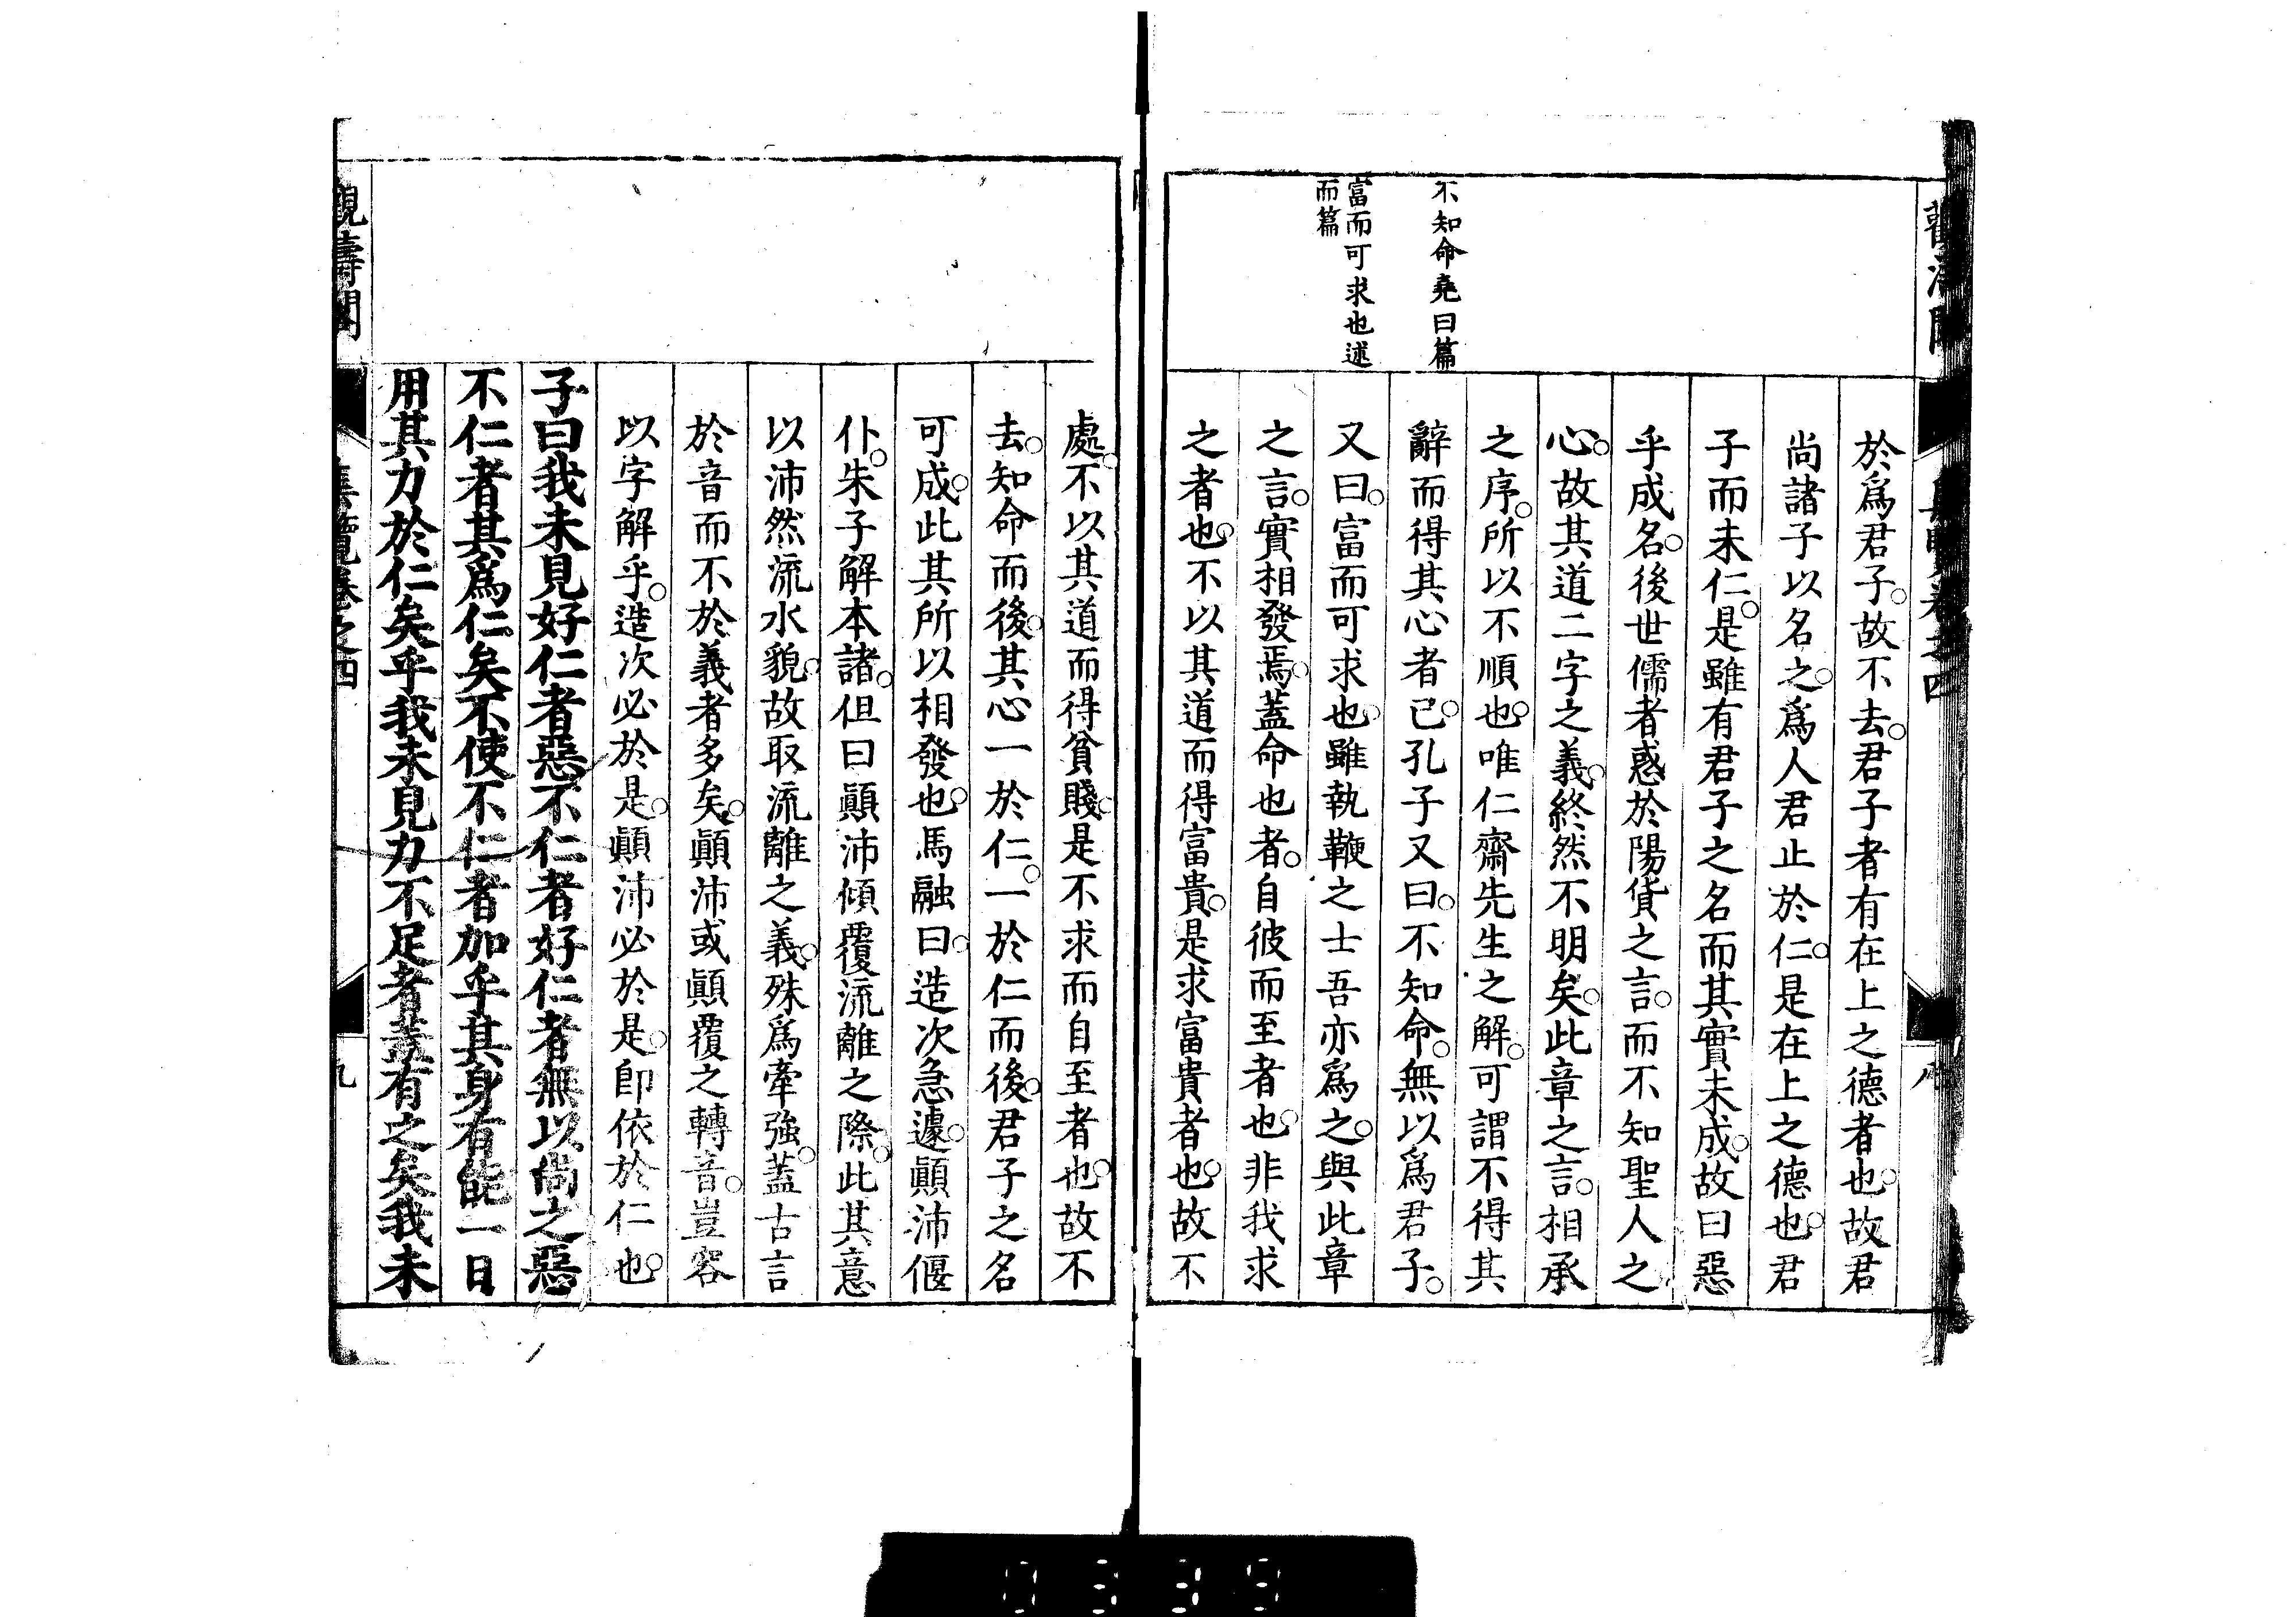 不知命堯曰篇
富而可求也述
而篇
於爲君子故不去君子者有在上之德者也故君
尚諸子以名之爲人君止於仁是在上之德也君
子而未仁是雖有君子之名而其實未成故曰惡
乎成名後世儒者惑於陽貨之言而不知聖人之
心故其道二字之義終然不明矣此章之言相承
之序所以不順也唯仁齋先生之解可謂不得其
辭而得其心者已孔子又曰不知命無以爲君子
又曰富而可求也雖執鞭之士吾亦爲之與此章
之言實相發焉蓋命也者自彼而至者也非我求
之者也不以其道而得富貴是求富貴者也故不
處不以其道而得貧賤是不求而自至者也故不
去知命而後其心一於仁一於仁而後君子之名
可成此其所以相發也馬融曰造次急遽顚沛偃
仆朱子解本諸但曰顚沛傾覆流離之際此其意
以沛然流水貌故取流離之義殊爲牽強蓋古言
於音而不於義者多矣顚沛或顚覆之轉音豈容
以字解乎造次必於是顚沛必於是卽依於仁也
子曰我未見好仁者惡不仁者好仁者無以尚之惡
不仁者其爲仁矣不使不仁者加乎其身有能一日
用其力於仁矣乎我未見力不足者蓋有之矣我未
觀濤閣
集覽卷之四
九
0339